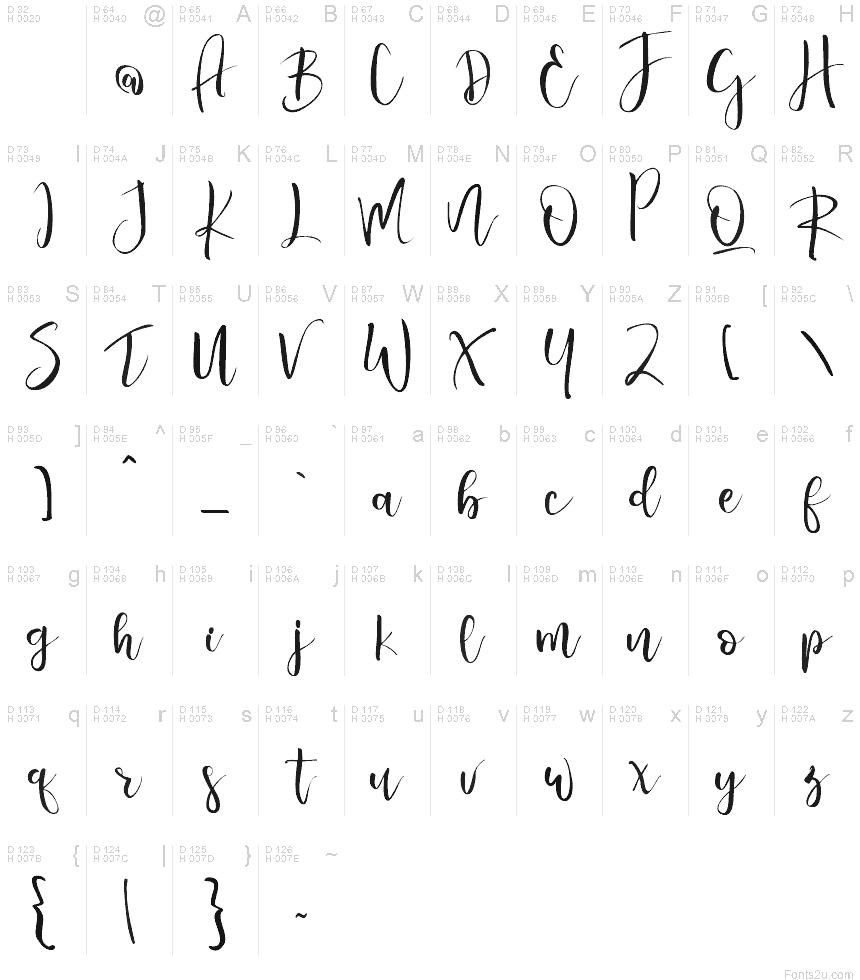 D 32 H 0020 D 64 H 0040 @ D 65 H 0041 A D 66 H 0042 B D 67 H 0043 C D 68 H 0044 D D 69 H 0045 E D 70 H 0046 F D 71 H 0047 G D 72 H 0048 H
@ A B C D E F G H
D 73 H 0049 I D 74 H 004A J D 75 H 004B K D 76 H 004C L D 77 H 004D M D 78 H 004E N D 79 H 004F O D 80 H 0050 P D 81 H 0051 Q D 82 H 0052 R
I J K L M N O P Q R
D 83 H 0053 S D 84 H 0054 T D 85 H 0055 U D 86 H 0056 V D 87 H 0057 W D 88 H 0058 X D 89 H 0059 Y D 90 H 005A Z D 91 H 005B [ D 92 H 005C \
S T U V W X Y Z [ \
D 93 H 005D ] D 94 H 005E ^ D 95 H 005F _ D 96 H 0060 ` D 97 H 0061 a D 98 H 0062 b D 99 H 0063 c D 100 H 0064 d D 101 H 0065 e D 102 H 0066 f
] ^ _ ` a b c d e f
D 103 H 0067 g D 104 H 0068 h D 105 H 0069 i D 106 H 006A j D 107 H 006B k D 108 H 006C l D 109 H 006D m D 110 H 006E n D 111 H 006F o D 112 H 0070 p
g h i j k l m n o p
D 113 H 0071 q D 114 H 0072 r D 115 H 0073 s D 116 H 0074 t D 117 H 0075 u D 118 H 0076 v D 119 H 0077 w D 120 H 0078 x D 121 H 0079 y D 122 H 007A z
q r s t u v w x y z
D 123 H 007B { D 124 H 007C | D 125 H 007D } D 126 H 007E ~
{ | } ~
Fonts2u.com